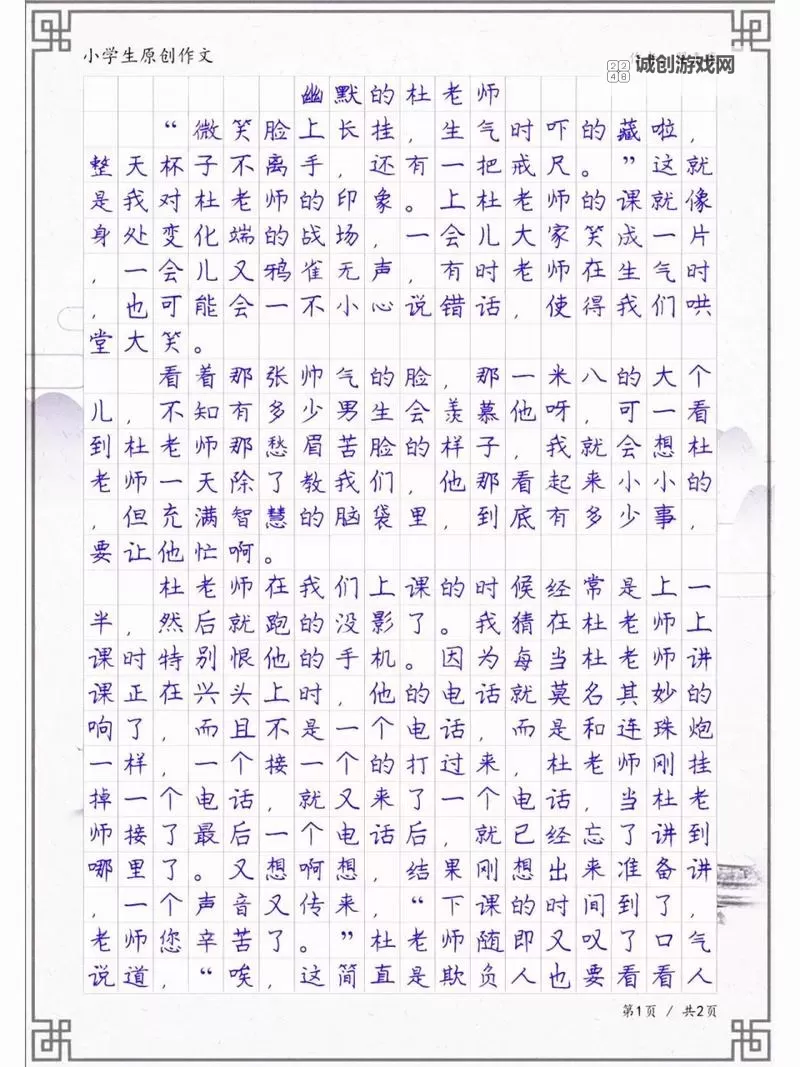 小学生原创作文
2248 诚创游戏网
幽默的杜老师
“微笑脸上长挂，生气时吓的藏啦，
整天杯子不离手，还有一把戒尺。”这就
是我对杜老师的印象。上杜老师的课就像
身处变化端的战场，一会儿大家笑成一片
，一会儿又鸦雀无声，有时老师在生气时
，也可能会一不小心说错话，使得我们哄
堂大笑。
看着那张帅气的脸，那一米八的大个
儿，不知有多少男生会羡慕他呀，可一看
到杜老师那愁眉苦脸的样子，我就会想杜
老师一天除了教我们，他那看起来小小的
，但充满智慧的脑袋里，到底有多少事，
要让他忙啊。
杜老师在我们上课的时候经常是上一
半，然后就跑的没影了。我猜在杜老师上
课时特别恨他的手机。因为每当杜老师讲
课正在兴头上时，他的电话就莫名其妙的
响了，而且不是一个电话，而是和连珠炮
一样，一个接一个的打过来，杜老师刚挂
掉一个电话，就又来了一个电话，当杜老
师接了最后一个电话后，就已经忘了讲到
哪里了。又想啊想，结果刚想出来准备讲
，一个声音又传来，“下课的时间到了，
老师您辛苦了。”杜老师随即又叹了口气
说道，“唉，这简直是欺负人也要看看人
第1页 / 共2页